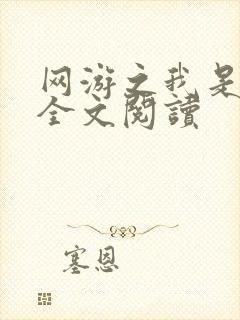 网游之我是
全文閱讀
塞恩